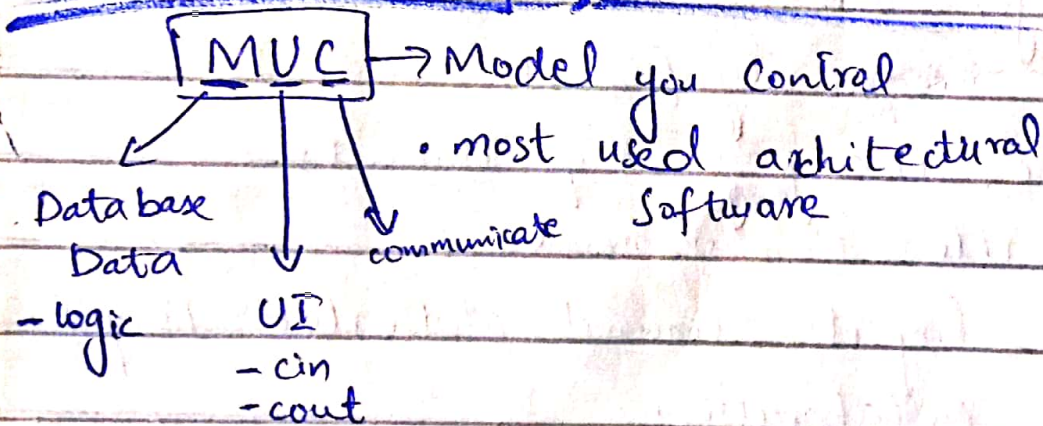 MUC → Model you Control
• most used architectural
software
Database
Data
- logic
UI
- cin
- cout
communicate